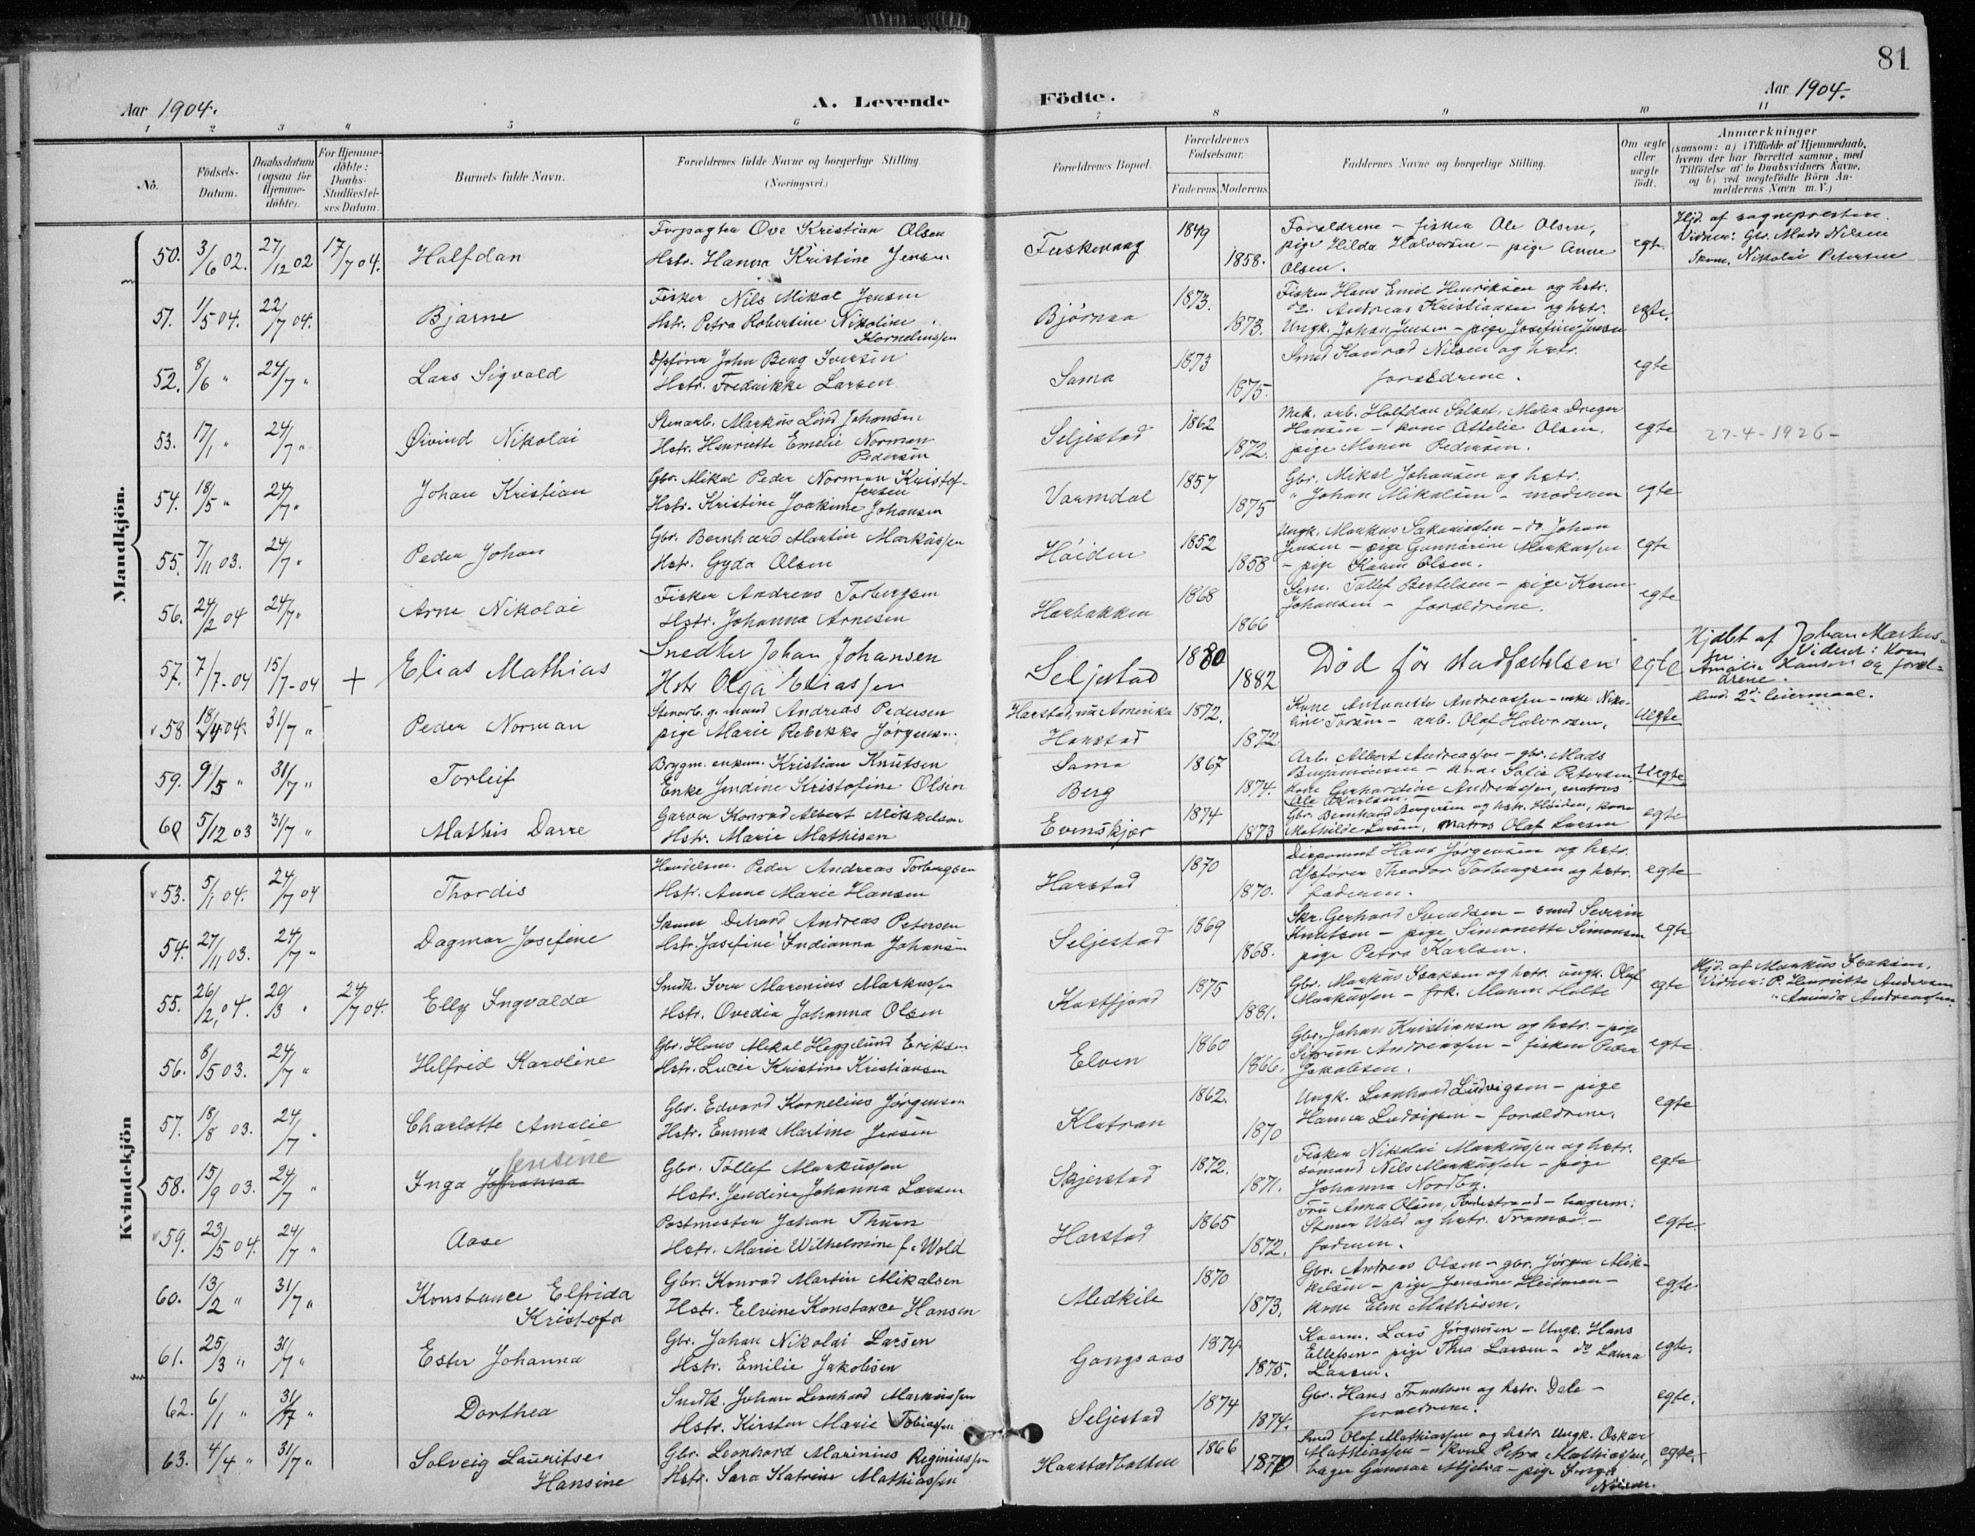 81
Aar 1904.
A. Levende Födte.
Aar 1904.
1 2 3 4 5 6 7 8 9 10 11
No.
Födsels-Datum.
Daabsdatum (ogsaa for Hjemmedöbte).
For Hjemmedöbte: Daabs-Stadfæstelses Datum.
Barnets fulde Navn.
Forældrenes fulde Navne og borgerlige Stilling (Næringsvei.)
Forældrenes Bopæl.
Forældrenes Födselsaar.
Faderens. Moderens.
Faddernes Navne og borgerlige Stilling.
Om ægte eller uægte födt.
Anmærkninger
(saasom: a) i Tilfælde af Hjemmedaab, hvem der har forrettet samme, med Tilföielse af to Daabsvidners Navne, og b) ved uægtefödte Börn Anmelderens Navn m. V.)
Mandkjön.
50. 3/6 02. 27/12 02 17/7 04. Halfdan
Forpagter Ove Kristian Olsen
Hstr. Hanna Kristine Jensen
Fuskevaag 1849 1858.
Forældrene - fisker Ole Olsen,
pige Hilda Halvorsen - pige Anne
Olsen.
egte
Hjd. af sognepresten.
Vidner: Gbr. Mads Nilsen
Skom. Nikolai Petersen
51. 1/5 04. 22/7 04. Bjarne
Fisker Nils Mikal Jensen
Hstr. Petra Robertine Nikoline
Korneliussen
Bjørnaa 1873. 1873.
Fisker Hans Emil Henriksen og hstr.
do. Andreas Kristiansen og hstr.
Ungk. Johan Jensen - pige Josefine Jensen
egte.
52. 8/6 " 24/7 " Lars Sigvald
John Berg Iversen
Hstr. Fredrikke Larsen
Sama 1873 1875.
Smed Konrad Nilsen og hstr.
forældrene.
egte
53. 17/1 " 24/7 " Øivind Nikolai
Stenarb. Markus Lind Johansen
Hstr. Henriette Emelie Norman
Pedersen
Seljestad 1862 1872.
Mek. arb. Halfdan Selset, Maler Dreyer
Hansen - kone Ottelie Olsen,
pige Maren Pedersen.
egte
27-4-1926-
54. 18/5 " 24/7 " Johan Kristian
Gbr. Mikal Peder Norman Kristof-
fersen
Hstr. Kristine Joakime Johansen
Varmdal 1857 1875
Gbr. Mikal Johansen og hstr.
" Johan Mikalsen - moderen
egte
55. 7/11 03. 24/7 " Peder Johan
Gbr. Bernhard Martin Markussen
Hstr. Gyda Olsen
Høiden 1852 1858
Ungk. Markus Sakariassen - do Johan
Jensen - pige Gunnarine Markussen
- pige Karen Olsen.
egte
56. 24/2 04 24/7 " Arne Nikolai
Fisker Andreas Torbergsen
Hstr. Johanna Arnesen
Harbakken 1868 1866
Sem. Tollef Bertelsen - pige Karen
Johansen - forældrene.
egte
57. 7/7-04 15/7-04 + Elias Mathias
Snedker Johan Johansen
Hstr Olga Eliassen
Seljestad 1880 1882
Død før stadfæstelsen
egte
Hjdbt af Johan Markus-
sen Vidner: kone
Amalie Hansen og foræl-
drene.
58 18/4 04. 31/7 " Peder Norman
Stenarb. g. mand Andreas Pedersen
pige Marie Rebekka Jørgensen
Harstad, nu Amerika
Harstad
1872. 1872.
Kone Antonette Andreassen - enke Niko-
line Larsen - arb. Olaf Halvorsen,
Uegte
Hend. 2d leiermaal.
59. 9/5 " 31/7 " Torleif
Brygm. enkem. Kristian Knutsen
Enke Jendine Kristofine Olsen
Sama
Berg
1867 1874.
Arb. Albert Andreassen - gbr. Mads
Benjaminsen - kone Sofie Petersen
kone Gerhardine Andreassen, matros
Ole Karlsen. -
Uegte
60 5/12 03 31/7 " Mathis Darre
Garver Konrad Albert Mikkelsen
Hstr. Marie Mathisen
Evenskjær 1874 1873
Gbr. Bernhard Bergersen og hstr. Høiden, kone
Mathilde Larsen, matros Olaf Larsen
egte
Kvindekjön
53. 5/1 04. 24/7 04 Thordis
Handelsm. Peder Andreas Torbergsen
Hstr. Anne Marie Hansen
Harstad 1870 1870.
Disponent Hans Jørgensen og hstr.
Theodor Torbergsen og hstr.
faderen.
egte
54. 27/11 03. 24/7 " Dagmar Josefine
Andreas Petersen
Hstr. Josefine Indianna Johansen
Seljestad 1869 1868.
Skr. Gerhard Svendsen - smed Severin
Knutsen - pige Simonette Simonsen
pige Petra Karlsen.
egte
55. 26/2 04. 20/3 " 24/7 04. Elly Ingvalda
Snedk. Iver Marenius Markussen
Hstr. Ovedia Johanna Olsen
Kasfjord 1875 1881.
Gbr. Markus Isaksen og hstr. ungk. Olaf
Markussen - frk. Maren Holte
egte
Hjd. af Markus Isaksen.
Vidner: P. Henriette Andersen
" Amanda Andreassen
56. 8/5 03. 24/7 " Helfrid Karoline
Gbr. Hans Mikal Heggelund Eriksen
Hstr. Lucie Kristine Kristiansen
Elven 1860 1866.
Gbr. Johan Kristiansen og hstr. - pige
Sigrun Andreassen - fisker Peder
Jakobsen.
egte
57. 18/8 03. 24/7 " Charlotte Amalie
Gbr. Edvard Kornelius Jørgensen
Hstr. Emma Martine Jensen
Klatran 1862. 1870
Ungk. Leonhard Ludvigsen - pige
Hanna Ludvigsen - forældrene.
egte
58. 15/9 03. 24/7 " Inga Johanna
Jensine
Gbr. Tollef Markussen
Hstr. Jendine Johanna Larsen
Skjerstad 1872. 1871.
Fisker Nikolai Markussen og hstr.
sømand Nils Markussen - pige
Johanna Nordby.
egte
59. 23/5 04. 24/7 " Aase
Postmester Johan Thurn
Hstr. Marie Wilhelmine f. Wold
Harstad 1865 1872.
Fru Anna Olsen, - bagerm:
Stener Wold og hstr. Tromsø. -
faderen.
egte
60. 13/2 " 31/7 " Konstance Elfrida
Kristofa
Gbr. Konrad Martin Mikalsen
Hstr. Elvine Konstance Hansen
Medkile 1870 1873.
Gbr. Andreas Olsen - gbr. Jørgen Mik-
kelsen - pige Jensine Heitman -
kone Elen Mathisen.
egte
61. 25/3 " 31/7 " Ester Johanna
Gbr. Johan Nikolai Larsen
Hstr. Emilie Jakobsen
Gangsaas 1874 1875.
Kaarm. Lars Jørgensen - Ungk. Hans
Ellefsen - pige Thea Larsen - do Laura
Larsen.
egte.
62. 6/1 " 31/7 " Dorthea
Snedk. Johan Leonhard Markussen
Hstr. Kirsten Marie Tobiassen
Seljestad 1874 1874.
Gbr. Hans Frantsen og hstr. Dale -
forældrene.
egte.
63. 4/4 " 31/7 " Solveig Lauritse
Hansine
Gbr. Leonhard Marinius Reginiussen
Hstr. Sara Katrine Mathiassen
Harstadbotten 1866 1870
Smed Olaf Mathiassen og hstr Ungk. Oskar
Mathiassen - kone Petra Mathiassen,
bager Gunnar Mjelva - pige Inga
egte.